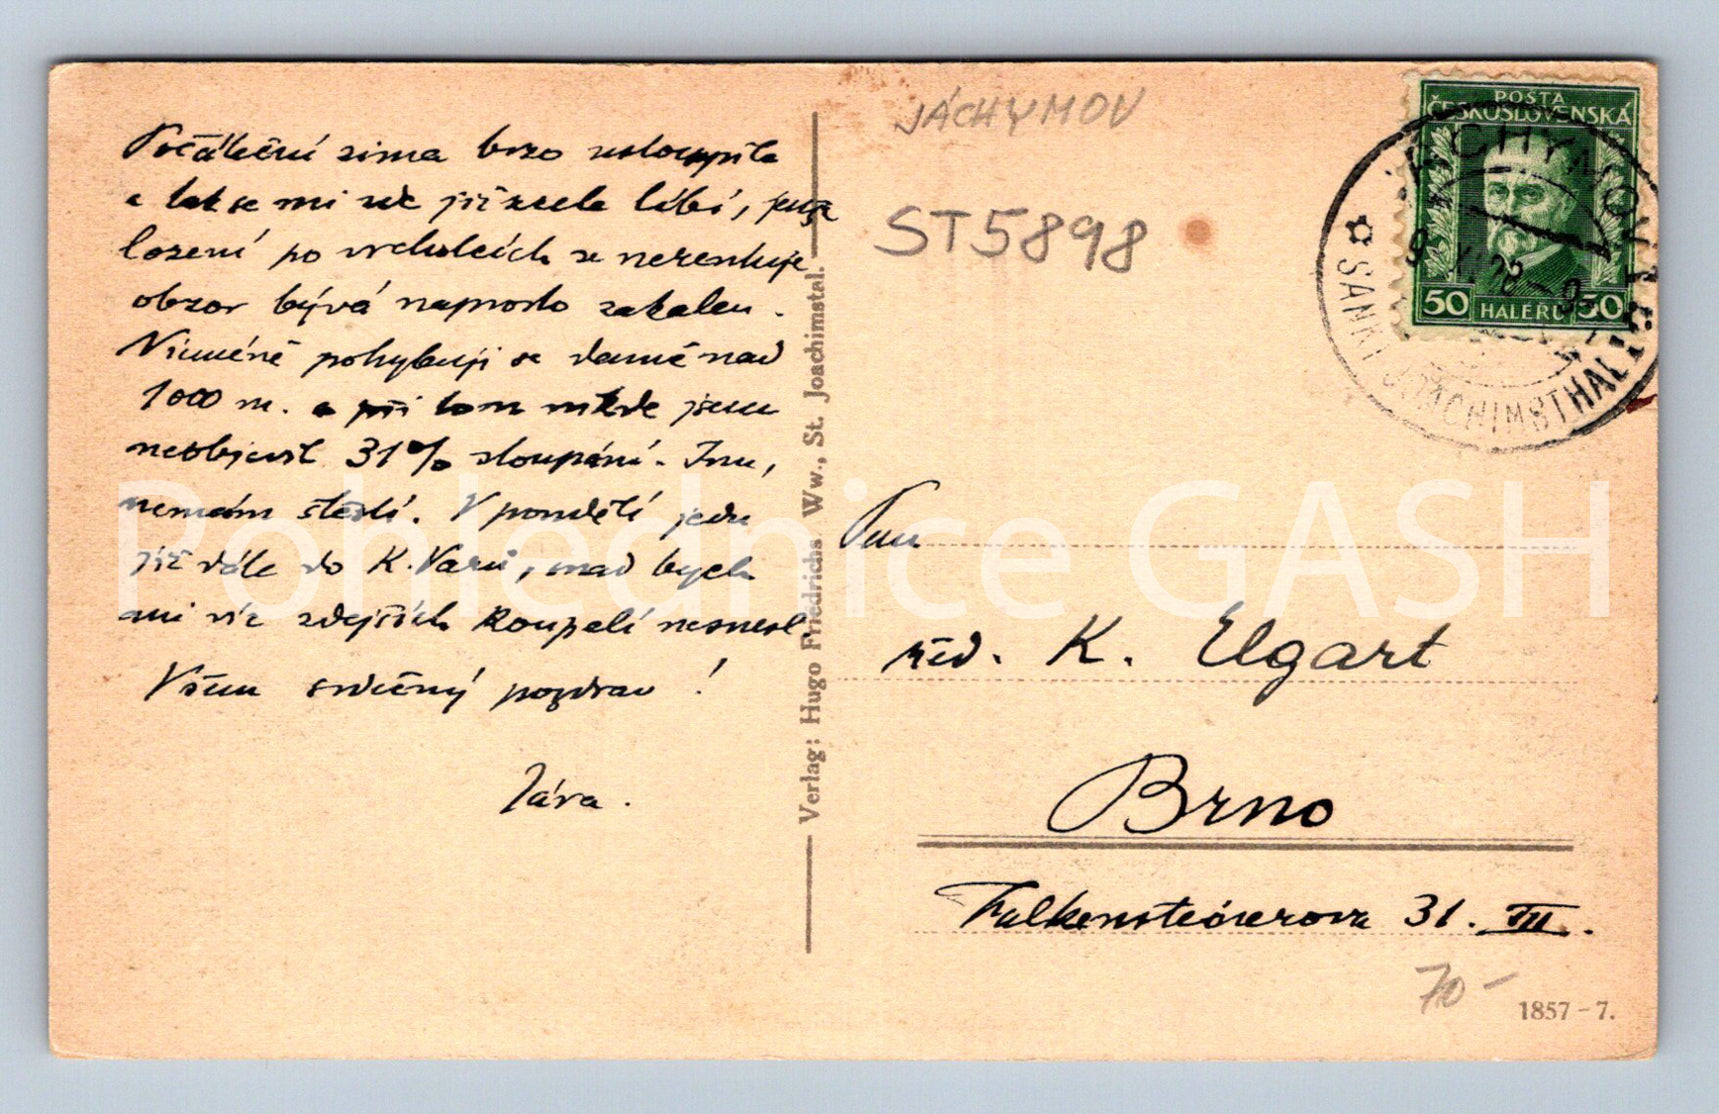 JÁCHYMOV
ST5898
POŠTA
ČESKOSLOVENSKÁ
50 HALÉŘŮ 50
JÁCHYMOV
SANKT JOACHIMSTHAL
Počáteční zima brzo ustoupila
a tak se mi zde již zcela líbí, jenže
lození po vrcholcích se nerentuje
obzor bývá naprosto zakalen.
Nicméně pohybuji se denně nad
1000 m. a při tom nikde jsem
neobjevil 31% stoupání. Inu,
nemám štěstí. V pondělí jedu
již dále do K. Varů, snad bych
ani víc zdejších koupelí nesnesl.
Všem srdečný pozdrav!
Jára.
Verlag: Hugo Friedrichs Ww., St. Joachimstal.
Pan
red. K. Elgart
Brno
Falkensteinerova 31. III.
70-
1857-7.
Pohlednice GASH